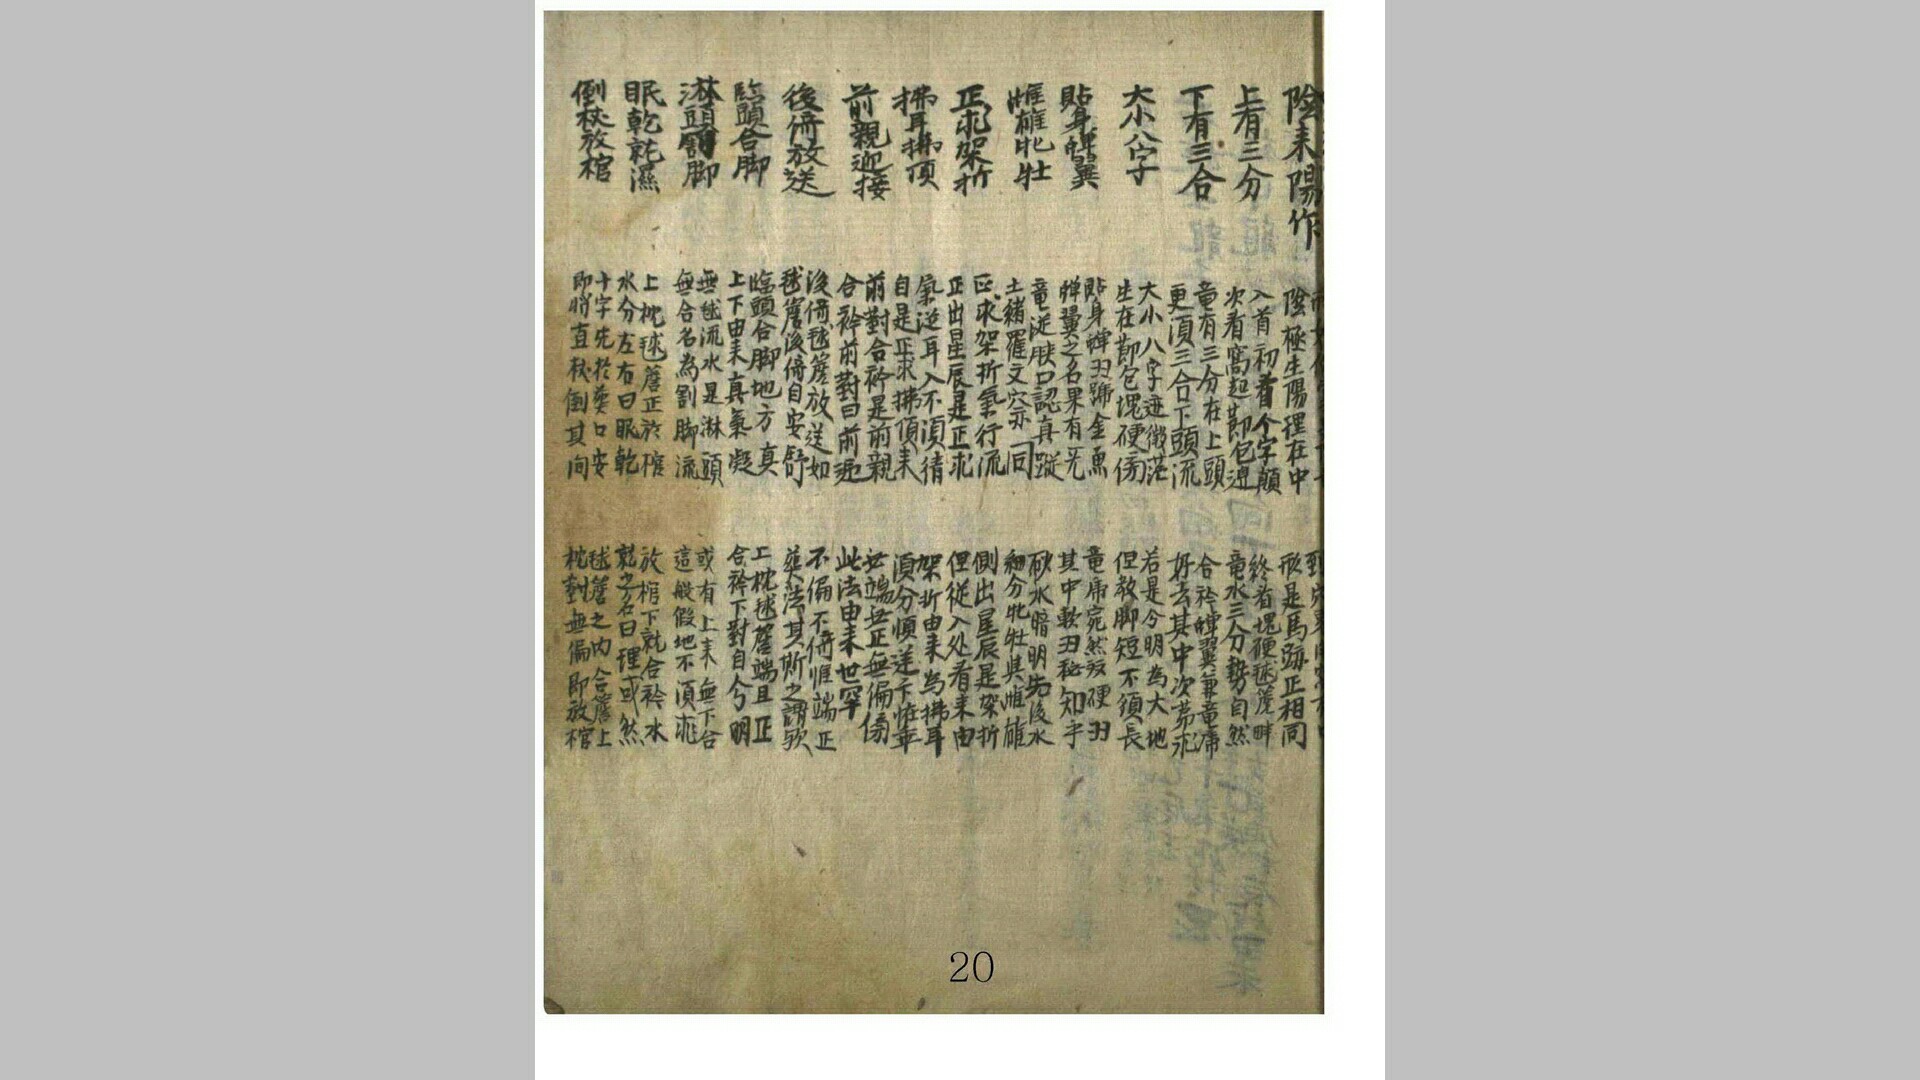 陰来陽作
陰極生陽理在中
形是馬跡正相同
上有三分
入首初看个字顛
次看窩起節包邊
終看塊硬毬簷畔
竜水三分勢自然
下有三合
竜有三分在上頭
更須三合下頭流
合衿蟬翼兼竜虎
好去其中次第求
大小八字
大小八字迹微茫
生在節包塊硬傍
若是分明為大地
但教脚短不須長
貼身蟬翼
貼身蟬翼號金魚
蟬翼之名果有无
竜虎宛然硬羽
其中軟羽秘知乎
雌雄牝牡
竜従肤口認真蹤
土縮羅文穴亦同
砂水暗明先後水
細分牝牡與雌雄
正求架折
正求架折氣行流
正出星辰是正求
側出星辰是架折
但従入处看来由
拂耳拂頂
氣従耳入不須猜
自是正求拂頂来
架折由来為拂耳
須分順逆
前親迎接
前對合衿是前親
合衿前對曰前迎
無端無正無偏傍
此法由来世罕
後倚放送
後倚毬簷放送如
毬簷後倚自安舒
不偏不倚惟端正
葬法其斯之謂歟
臨頭合脚
臨頭合脚地方真
上下由来真氣凝
上枕毬簷端且正
合衿下對自分明
淋頭割脚
無毬流水是淋頭
無合名為割脚流
或有上来無下合
這般假地不須求
眠乾就濕
上枕毬簷正於棺
水分左右曰眠乾
放棺下就合衿水
就之名曰理或然
倒杖放棺
十字先於葬口安
即將直杖倒其间
毬簷之内合簷上
枕對無偏即放棺
20